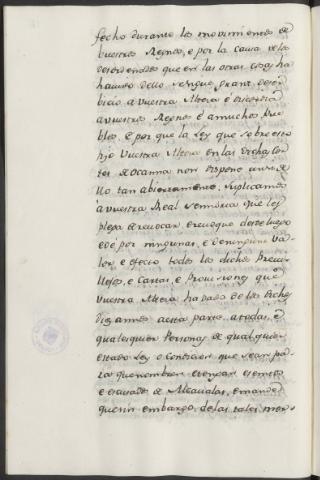 fecho durante los movimientos de
vuestros Reynos, e por la causa de los
desordenados que en las otras cosas ha
havido dello se sigue grant deser-
bicio a Vuestra Alteza e
a vuestros Reynos e a muchos Pue-
blos, e por que la Ley que sobre esto
hizo Vuestra Alteza en las dichas Cor-
tes de Ocanna non dispone
llo tan abiertamente, suplicamos
a vuestra Real Sennoria que les
plega e revoque desde luego
e dé por ningunas, e de ningund va-
lor, e efecto todos los dichos Previ-
llejos, e Cartas, e Provisiones que
Vuestra Alteza ha dado de los dichos
diz annos a esta parte, a todas, e
qualesquier Personas de qualquier
estado Ley o condicion que sean pa-
ra que nombren escusar esentos
e escusados de Alcavalas, e mande
que sin embargo de las tales mer-